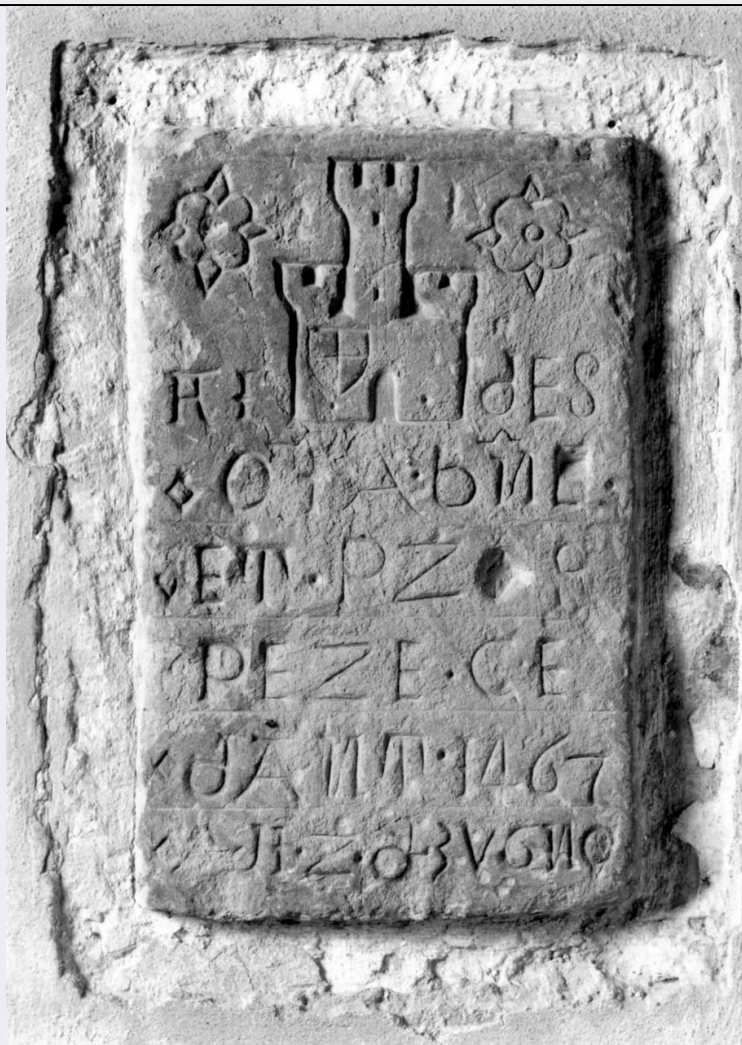 HI dES
OIA·bNE
ET·PZO
PEZE·C·E
dANT·1467
JI·Z·d3V·GNO